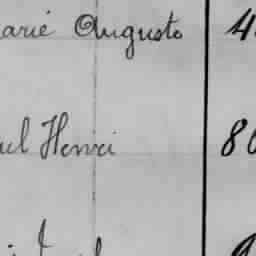 arie Augusto 4
ul Henri 80